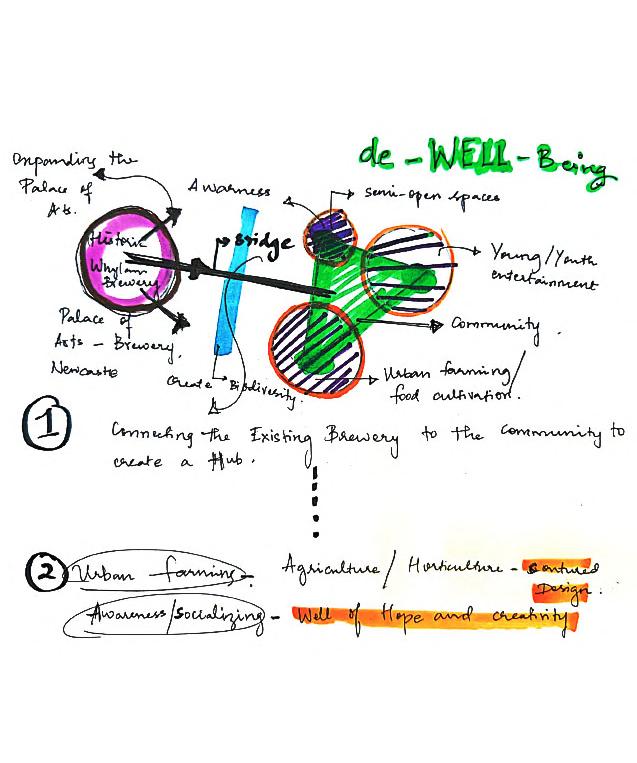 de - WELL - Being
Expanding the
Palace of
Arts.
Awarness
semi-open spaces
Historic
Whylam
Brewery
Bridge
Young/Youth
entertainment
Palace of
Arts - Brewery,
Newcastle
Community
create Biodivesity.
Urban farming/
food cultivation.
1 Connecting the Existing Brewery to the community to
create a Hub.
2 Urban farming - Agriculture/Horticulture -
Design.
Awareness/socializing - Well of Hope and creativity